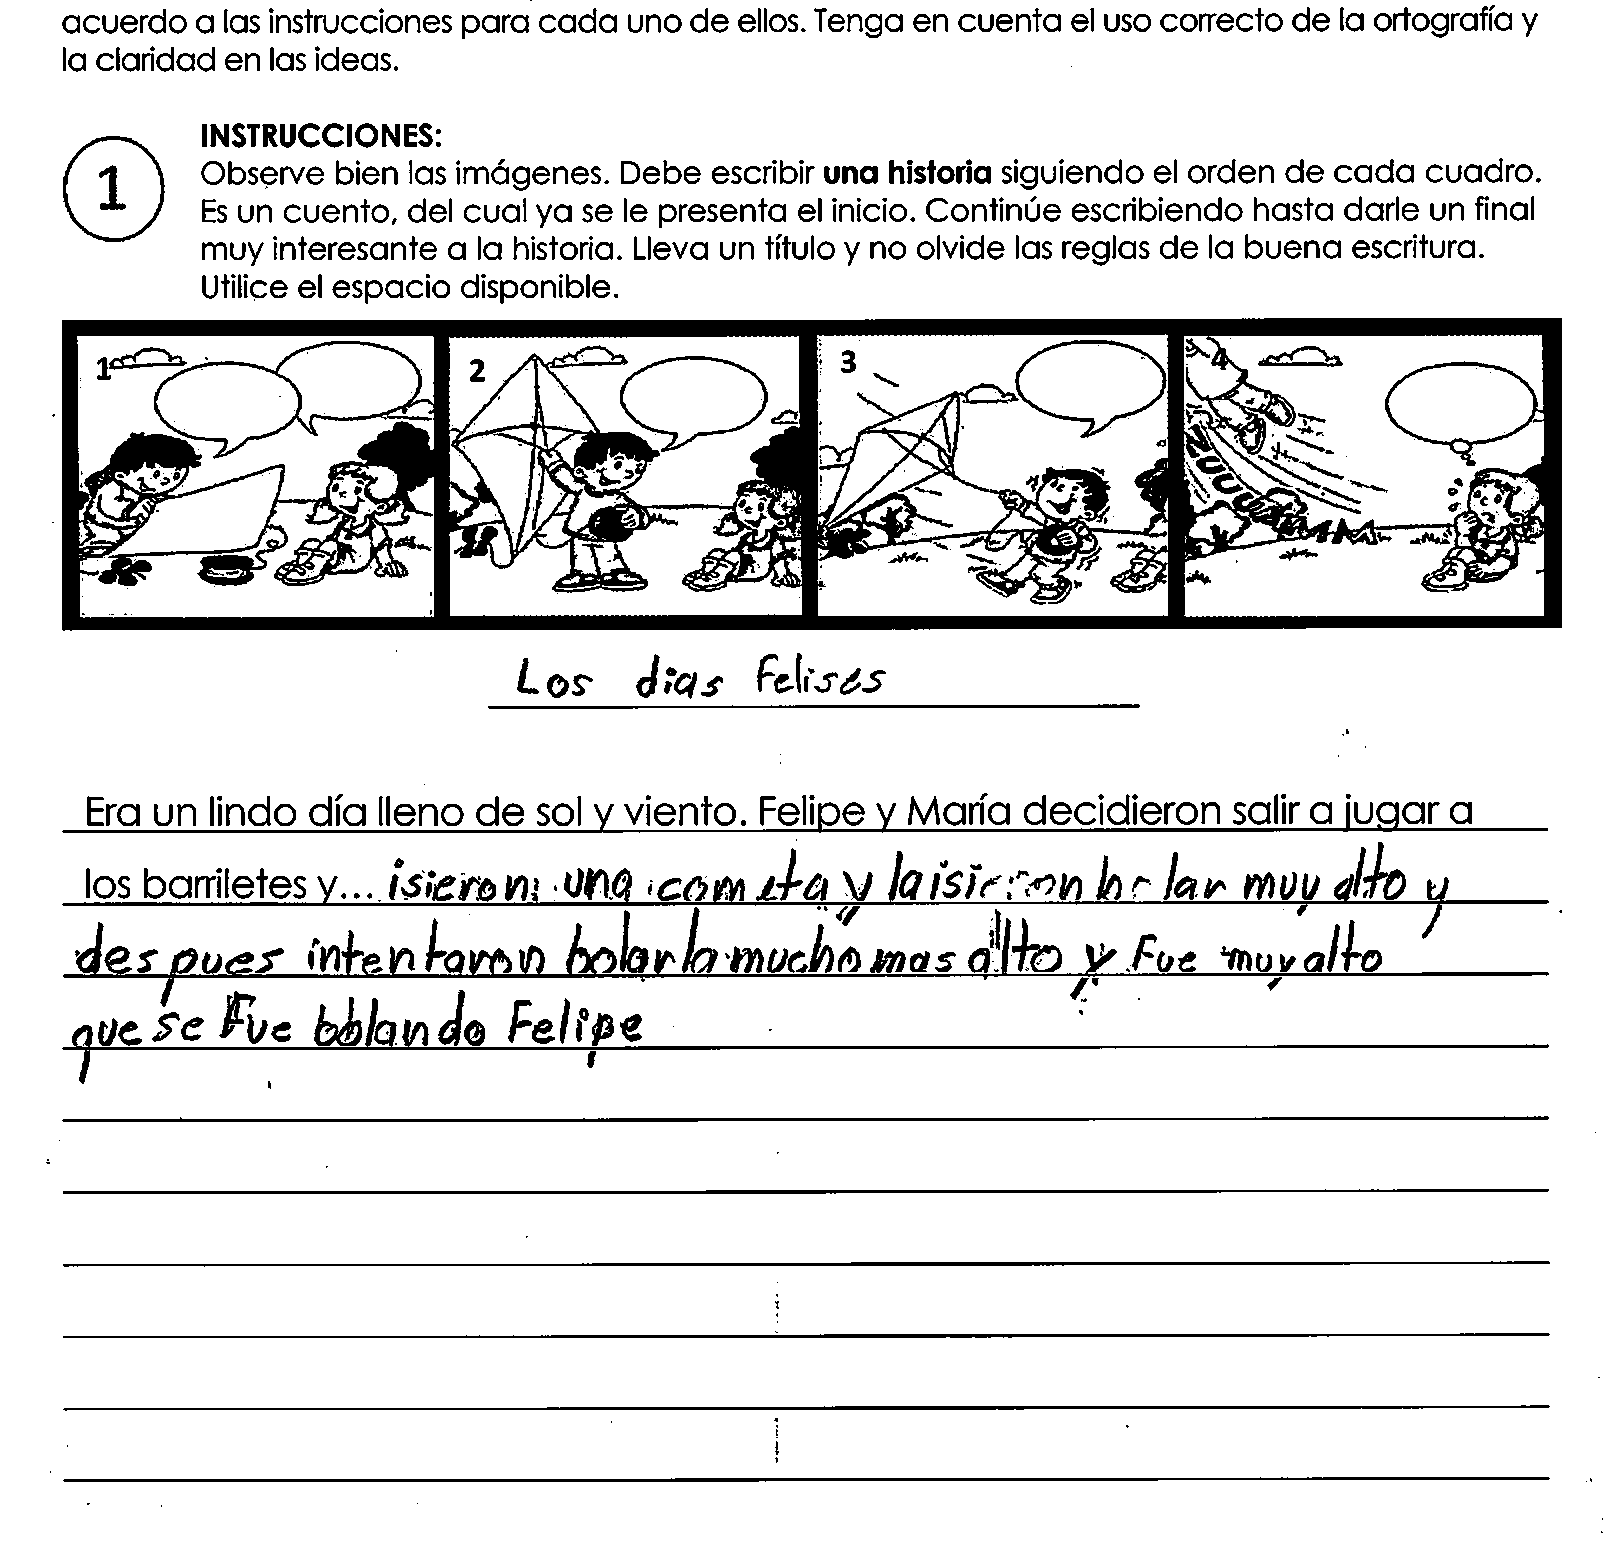 acuerdo a las instrucciones para cada uno de ellos. Tenga en cuenta el uso correcto de la ortografía y
la claridad en las ideas.
1
INSTRUCCIONES:
Observe bien las imágenes. Debe escribir una historia siguiendo el orden de cada cuadro.
Es un cuento, del cual ya se le presenta el inicio. Continúe escribiendo hasta darle un final
muy interesante a la historia. Lleva un título y no olvide las reglas de la buena escritura.
Utilice el espacio disponible.
1 2 3 4
Los dias Felises
Era un lindo día lleno de sol y viento. Felipe y María decidieron salir a jugar a
los barriletes y... isieron una cometa y la isieron bolar muy alto y
despues intentaron bolarla mucho mas alto y Fue muy alto
que se Fue bolando Felipe